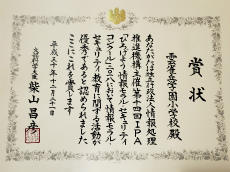 賞状
雲雀丘学園小学校殿
あなたがたは独立行政法人情報処理
推進機構主催第十四回IPA
「ひろげよう情報モラル・セキュリティ
コンクール」二〇一八において情報モラル・
セキュリティ教育に関する活動が
優秀であると認められました
ここにこれを賞します
平成三十年十二月二十一日
文部科学大臣 柴山昌彦